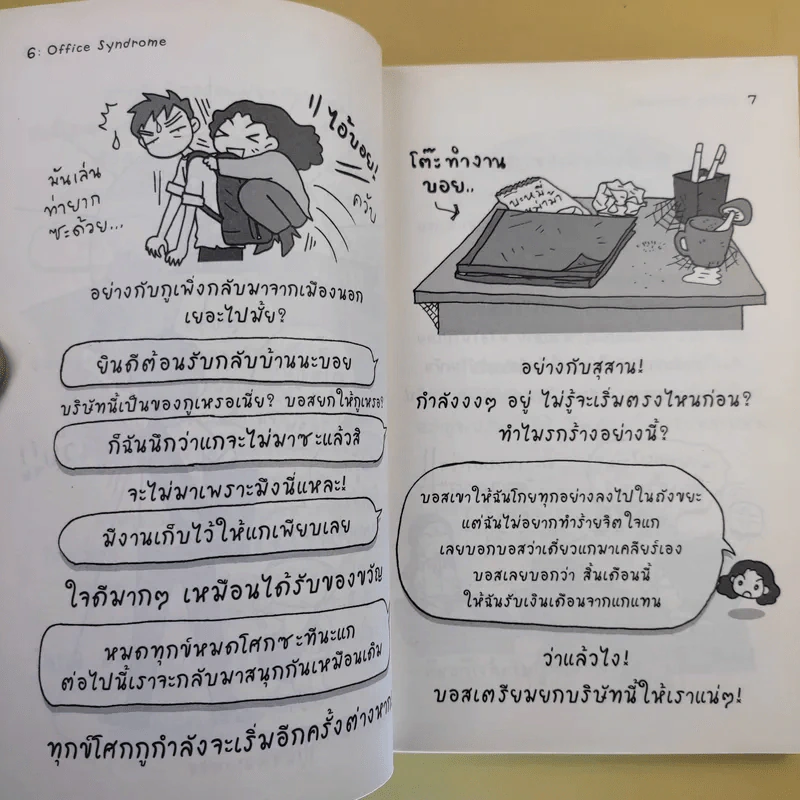 6: Office Syndrome
ไอ้บอย!
ควับ
มันเล่น
ท่ายาก
ซะด้วย...
อย่างกับกูเพิ่งกลับมาจากเมืองนอก
เยอะไปมั้ย?
ยินดีต้อนรับกลับบ้านนะบอย
บริษัทนี้เป็นของกูเหรอเนี่ย? บอสยกให้กูเหรอ?
ก็ฉันนึกว่าแกจะไม่มาซะแล้วสิ
จะไม่มาเพราะมึงนี่แหละ!
มีงานเก็บไว้ให้แกเพียบเลย
ใจดีมากๆ เหมือนได้รับของขวัญ
หมดทุกข์หมดโศกซะทีนะแก
ต่อไปนี้เราจะกลับมาสนุกกันเหมือนเดิม
ทุกข์โศกกูกำลังจะเริ่มอีกครั้งต่างหาก
7
โต๊ะทำงาน
บอย..
บะหมี่
อย่างกับสุสาน!
กำลังงงๆ อยู่ ไม่รู้จะเริ่มตรงไหนก่อน?
ทำไมรกร้างอย่างนี้?
บอสเขาให้ฉันโกยทุกอย่างลงไปในถังขยะ
แต่ฉันไม่อยากทำร้ายจิตใจแก
เลยบอกบอสว่าเดี๋ยวแกมาเคลียร์เอง
บอสเลยบอกว่า สิ้นเดือนนี้
ให้ฉันรับเงินเดือนจากแกแทน
ว่าแล้วไง!
บอสเตรียมยกบริษัทนี้ให้เราแน่ๆ!